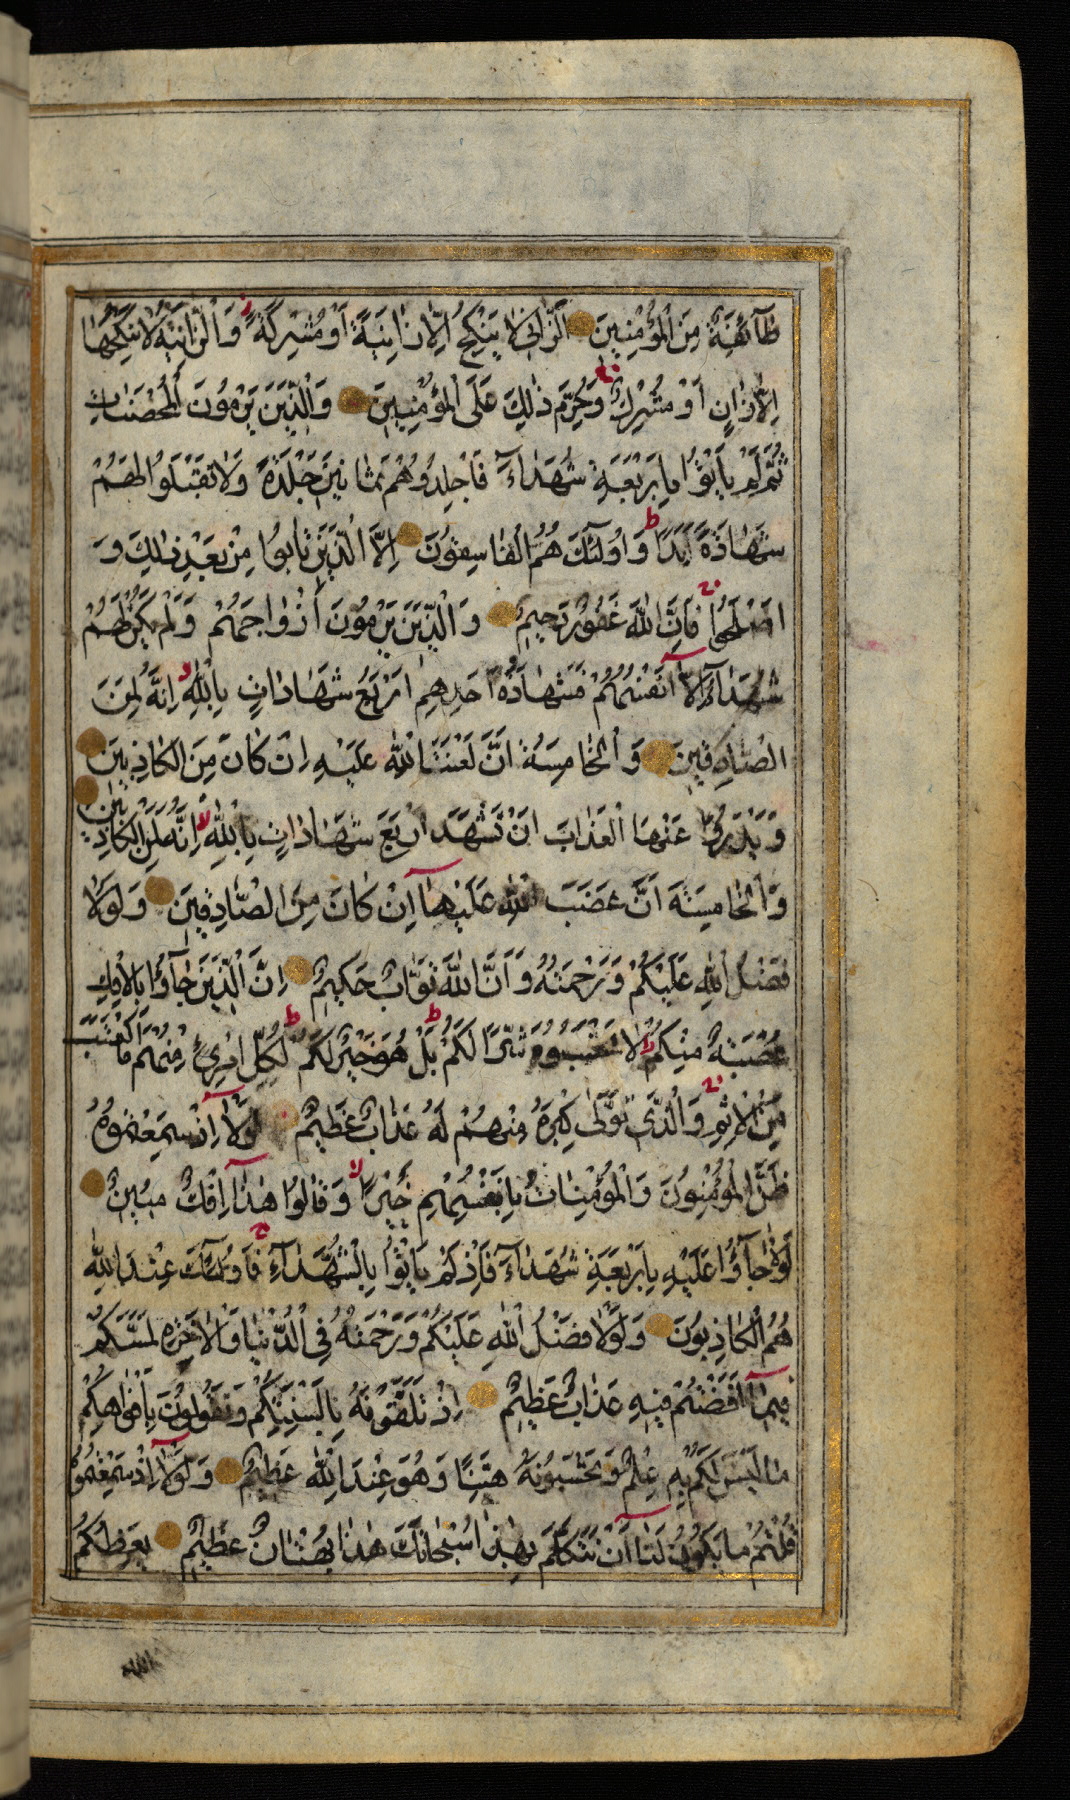 طَآئِفَةٌ مِنَ الْمُؤْمِنِينَ اَلزّانِى لَا يَنْكِحُ اِلَّا زَانِيَةً اَوْ مُشْرِكَةً وَالْزّانِيَةُ لَا يَنْكِحُهَا
اِلَّا زَانٍ اَوْ مُشْرِكٌ وَحُرِّمَ ذٰلِكَ عَلَى الْمُؤْمِنِينَ وَالَّذِينَ يَرْمُونَ الْمُحْصَنَاتِ
ثُمَّ لَمْ يَأْتُوا بِاَرْبَعَةِ شُهَدَآءَ فَاجْلِدُوهُمْ ثَمَانِينَ جَلْدَةً وَلَا تَقْبَلُوا لَهُمْ
شَهَادَةً اَبَدًا وَاُولٰئِكَ هُمُ الْفَاسِقُونَ اِلَّا الَّذِينَ تَابُوا مِنْ بَعْدِ ذٰلِكَ وَ
اَصْلَحُوا فَاِنَّ اللّٰهَ غَفُورٌ رَحِيمٌ وَالَّذِينَ يَرْمُونَ اَزْوَاجَهُمْ وَلَمْ يَكُنْ لَهُمْ
شُهَدَآءُ اِلَّآ اَنْفُسُهُمْ فَشَهَادَةُ اَحَدِهِمْ اَرْبَعُ شَهَادَاتٍ بِاللّٰهِ اِنَّهُ لَمِنَ
الصَّادِقِينَ وَالْخَامِسَةُ اَنَّ لَعْنَتَ اللّٰهِ عَلَيْهِ اِنْ كَانَ مِنَ الْكَاذِبِينَ
وَيَدْرَؤُا عَنْهَا الْعَذَابَ اَنْ تَشْهَدَ اَرْبَعَ شَهَادَاتٍ بِاللّٰهِ اِنَّهُ لَمِنَ الْكَاذِبِينَ
وَالْخَامِسَةَ اَنَّ غَضَبَ اللّٰهِ عَلَيْهَآ اِنْ كَانَ مِنَ الصَّادِقِينَ وَلَوْلَا
فَضْلُ اللّٰهِ عَلَيْكُمْ وَرَحْمَتُهُ وَاَنَّ اللّٰهَ تَوَّابٌ حَكِيمٌ اِنَّ الَّذِينَ جَآؤُا بِالْاِفْكِ
عُصْبَةٌ مِنْكُمْ لَا تَحْسَبُوهُ شَرًّا لَكُمْ بَلْ هُوَ خَيْرٌ لَكُمْ لِكُلِّ امْرِئٍ مِنْهُمْ مَا اكْتَسَبَ
مِنَ الْاِثْمِ وَالَّذِى تَوَلّٰى كِبْرَهُ مِنْهُمْ لَهُ عَذَابٌ عَظِيمٌ لَوْلَآ اِذْ سَمِعْتُمُوهُ
ظَنَّ الْمُؤْمِنُونَ وَالْمُؤْمِنَاتُ بِاَنْفُسِهِمْ خَيْرًا وَقَالُوا هٰذَآ اِفْكٌ مُبِينٌ
لَوْلَا جَآؤُا عَلَيْهِ بِاَرْبَعَةِ شُهَدَآءَ فَاِذْ لَمْ يَأْتُوا بِالشُّهَدَآءِ فَاُولٰئِكَ عِنْدَ اللّٰهِ
هُمُ الْكَاذِبُونَ وَلَوْلَا فَضْلُ اللّٰهِ عَلَيْكُمْ وَرَحْمَتُهُ فِى الدُّنْيَا وَالْاٰخِرَةِ لَمَسَّكُمْ
فِيمَآ اَفَضْتُمْ فِيهِ عَذَابٌ عَظِيمٌ اِذْ تَلَقَّوْنَهُ بِاَلْسِنَتِكُمْ وَتَقُولُونَ بِاَفْوَاهِكُمْ
مَا لَيْسَ لَكُمْ بِهِ عِلْمٌ وَتَحْسَبُونَهُ هَيِّنًا وَهُوَ عِنْدَ اللّٰهِ عَظِيمٌ وَلَوْلَآ اِذْ سَمِعْتُمُوهُ
قُلْتُمْ مَا يَكُونُ لَنَآ اَنْ نَتَكَلَّمَ بِهٰذَا سُبْحَانَكَ هٰذَا بُهْتَانٌ عَظِيمٌ يَعِظُكُمُ